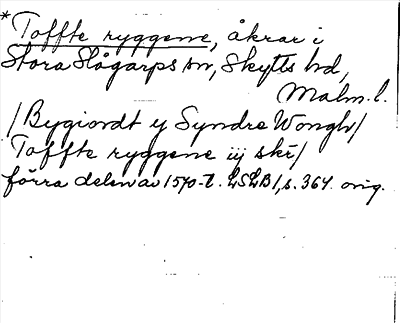 *Toffte ryggene, åkrar i
Stora Slågarps sn, Skytts hd,
Malm.l.
/Bygiordt y Syndre Wongh/
Toffte ryggene iij skr/
förra delen av 1570-t. LSLB1, s. 364. orig.